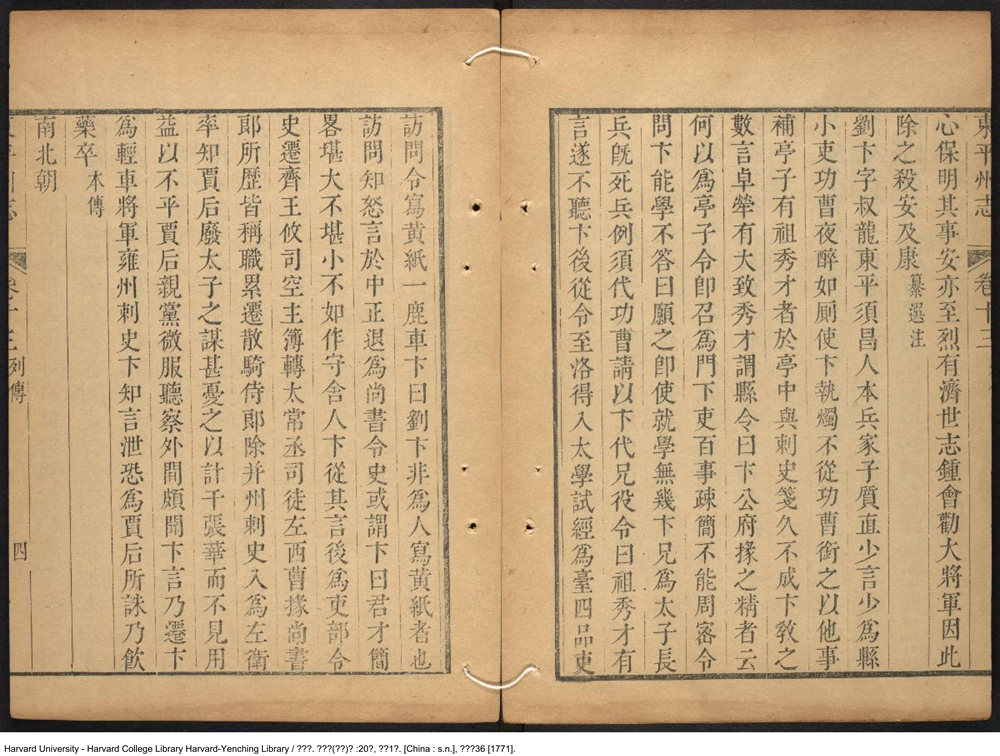 東平州志
卷十三
心保明其事安亦至烈有濟世志鍾會勸大將軍因此
除之殺安及康 纂選注
劉卞字叔龍東平須昌人本兵家子質直少言少為縣
小吏功曹夜醉如厠使卞執燭不從功曹銜之以他事
補亭子有祖秀才者於亭中與刺史箋久不成卞教之
數言卓犖有大致秀才謂縣令曰卞公府掾之精者云
何以為亭子令卽召為門下吏百事疎簡不能周密令
問卞能學不答曰願之卽使就學無幾卞兄為太子長
兵旣死兵例須代功曹請以卞代兄役令曰祖秀才有
言遂不聽卞後從令至洛得入太學試經為臺四品吏
訪問令寫黃紙一鹿車卞曰劉卞非為人寫黃紙者也
訪問知怒言於中正退為尚書令史或謂卞曰君才簡
畧堪大不堪小不如作守舍人卞從其言後為吏部令
史遷齊王攸司空主簿轉太常丞司徒左西曹掾尚書
郞所歷皆稱職累遷散騎侍郞除并州刺史入為左衛
率知賈后廢太子之謀甚憂之以計干張華而不見用
益以不平賈后親黨微服聽察外間頗聞卞言乃遷卞
為輕車將軍雍州刺史卞知言泄恐為賈后所誅乃飮
藥卒 本傳
南北朝
卷十三 列傳
四
Harvard University - Harvard College Library Harvard-Yenching Library / ???. ???(??)? :20?, ??1?. [China : s.n.], ???36 [1771].